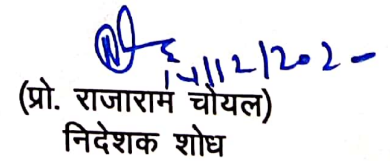 14/12/2020
(प्रो. राजाराम चोयल)
निदेशक शोध